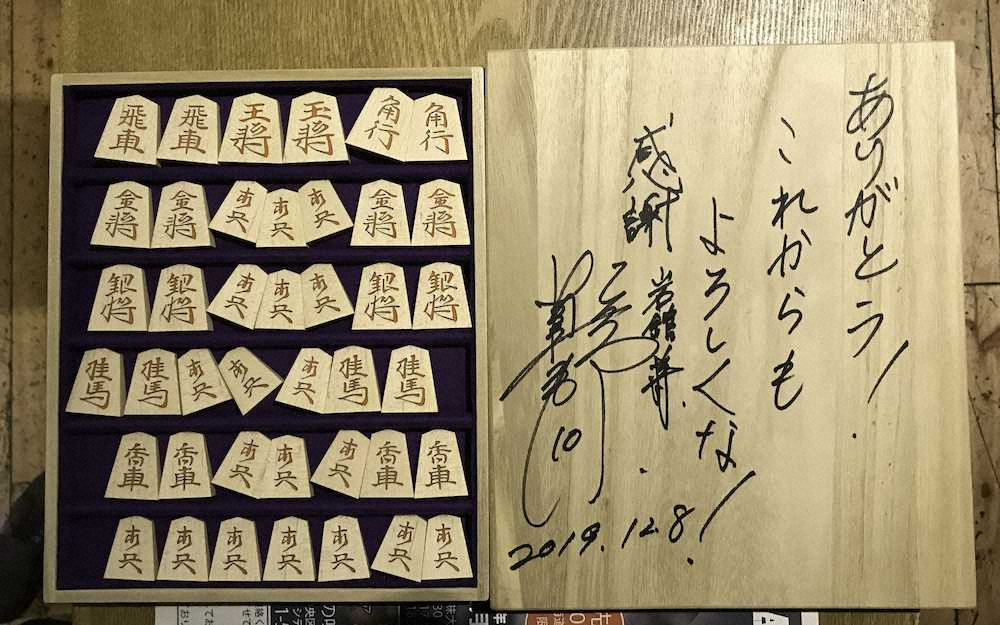 飛車 飛車 王将 玉将 角行 角行
金将 金将 歩兵 歩兵 歩兵 金将 金将
銀将 銀将 歩兵 歩兵 歩兵 銀将 銀将
桂馬 桂馬 歩兵 歩兵 歩兵 桂馬 桂馬
香車 香車 歩兵 歩兵 歩兵 香車 香車
歩兵 歩兵 歩兵 歩兵 歩兵 歩兵 歩兵
ありがとう!
これからも
よろしくな!
感謝
10
2019.12.8.